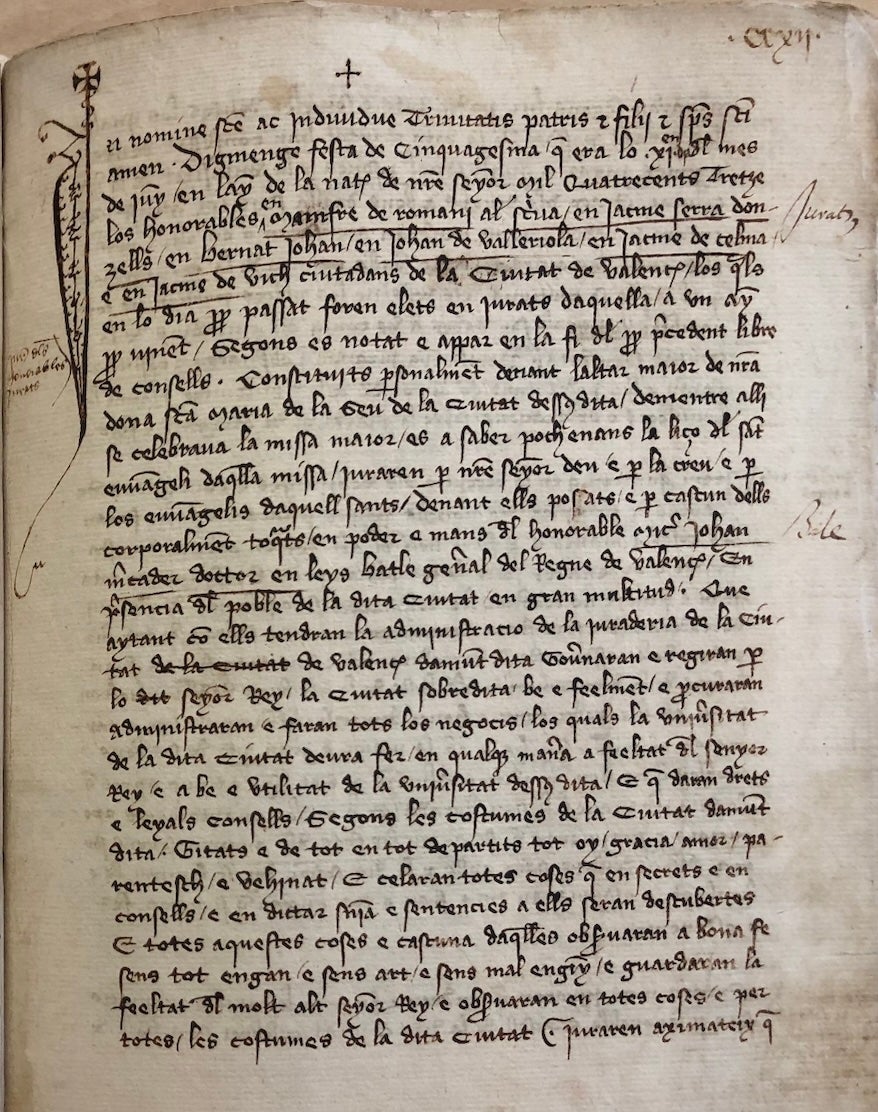 . CCxxij .
+
In nomine sc̃e ac Indiuidue Trinitatis patris ⁊ filij ⁊ sp̃s sc̃i
amen . Digmenge festa de Cinquagesma / q̃ era lo . xj. del mes
de juny / en lany de la nat de nr̃e seyor Mil Quatrecents Tretze
los honorables en Manfre de romani al sc̃iua / en Jacme serra don-
zells / en bernat Johan / en Johan de valleriola / en Jacme de celma
e en Jacme de vich ciutadans de la Ciutat de valenc̃ / los q̃ls
en lo dia ꝓꝑ passat foren elets en jurats daquella / a vn añy
ꝓꝑ vinẽt / Segons es notat e appar en la fi dl̃ ꝓꝑ p̃cedent libre
de consells . Constituits ꝑsonalmẽt deuant laltar maior de nr̃a
dona sc̃a Maria de la Seu de la Ciutat dessus dita / dementre alli
se celebraua la missa maior / es a saber poch enans la liço dl̃ sãt
euuãgeli daq̃lla missa / juraren ꝑ nr̃e seyor deu e ꝑ la creu / e ꝑ
los euuãgelis daquell sants / denant ells posats / e ꝑ cascun dells
corporalmẽt toq̃ts / en poder e mans dl̃ honorable Mic̃ Johan
m̃cader doctor en leys batle geñal del Regne de valenc̃ / En
p̃sencia dl̃ poble de la dita Ciutat en gran multitud . Que
aytant cõ ells tendran la administracio de la juraderia de la Ciu-
tat de la Ciutat de valenc̃ damũt dita Gou̾naran e regiran ꝑ
lo dit seyor Rey / la Ciutat sobredita / be e feelmẽt / e ꝓcuraran
administraran e faran tots los negocis / los quals la vniu̾sitat
de la dita Ciutat deura fer / en qualq̃ mañа a feeltat dl̃ senyor
Rey / e a be e vtilitat de la vniu̾sitat dessus dita / E q̃ daran drets
e leyals consells / Segons les costumes de la Ciutat damũt
dita / Gitats e de tot en tot departits tot oy / gracia / amor / pa-
rentesch / e vehinat / E celaran totes coses q̃ en secrets e en
consells / e en dictar sñia e sentencies a ells seran descubertes
E totes aquestes coses e cascuna daq̃lles obs̾uaran a bona fe
sens tot engan / e sens art / e sens mal enginy / e guardaran la
feeltat dl̃ molt alt seyor Rey / e obs̾uaran en totes coses / e per
totes / les costumes de la dita Ciutat (. juraren aximateix q̃
Jurats
Batle
honorables
jurats